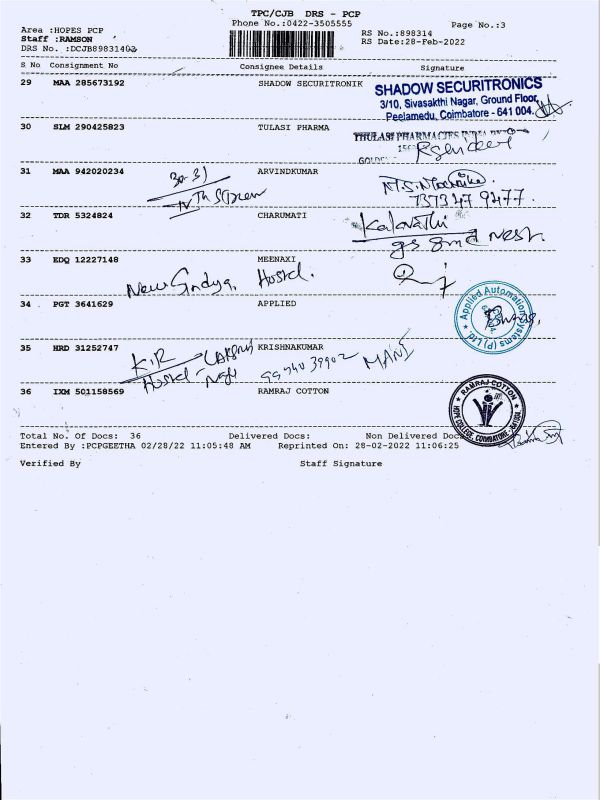 TPC/CJB DRS - PCP
Phone No.:0422-3505555
Page No.:3
Area :HOPES PCP
Staff :RAMSON
DRS No. :DCJB89831403
RS No.:898314
RS Date:28-Feb-2022
S No Consignment No Consignee Details Signature
29 MAA 285673192 SHADOW SECURITRONIK
SHADOW SECURITRONICS
3/10, Sivasakthi Nagar, Ground Floor,
Peelamedu, Coimbatore - 641 004.
30 SLM 290425823 TULASI PHARMA
THULASI PHARMACIES INDIA
31 MAA 942020234 ARVINDKUMAR
30-31
32 TDR 5324824 CHARUMATI
Kalavathi
33 EDQ 12227148 MEENAXI
New Hostel.
34 PGT 3641629 APPLIED
Applied Automation Systems (P) Ltd.
35 HRD 31252747 KRISHNAKUMAR
K.R
Hostel
MANI
36 IXM 501158569 RAMRAJ COTTON
RAMRAJ COTTON
HOPE COLLEGE, COIMBATORE
Total No. Of Docs: 36 Delivered Docs: Non Delivered Doc
Entered By :PCPGEETHA 02/28/22 11:05:48 AM Reprinted On: 28-02-2022 11:06:25
Verified By Staff Signature